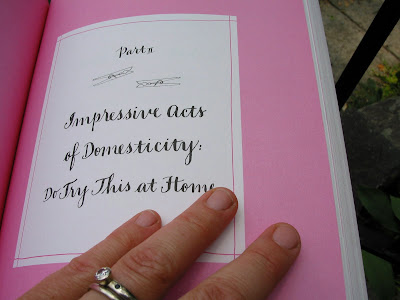 Part II
Impressive Acts
of Domesticity:
Do Try This at Home